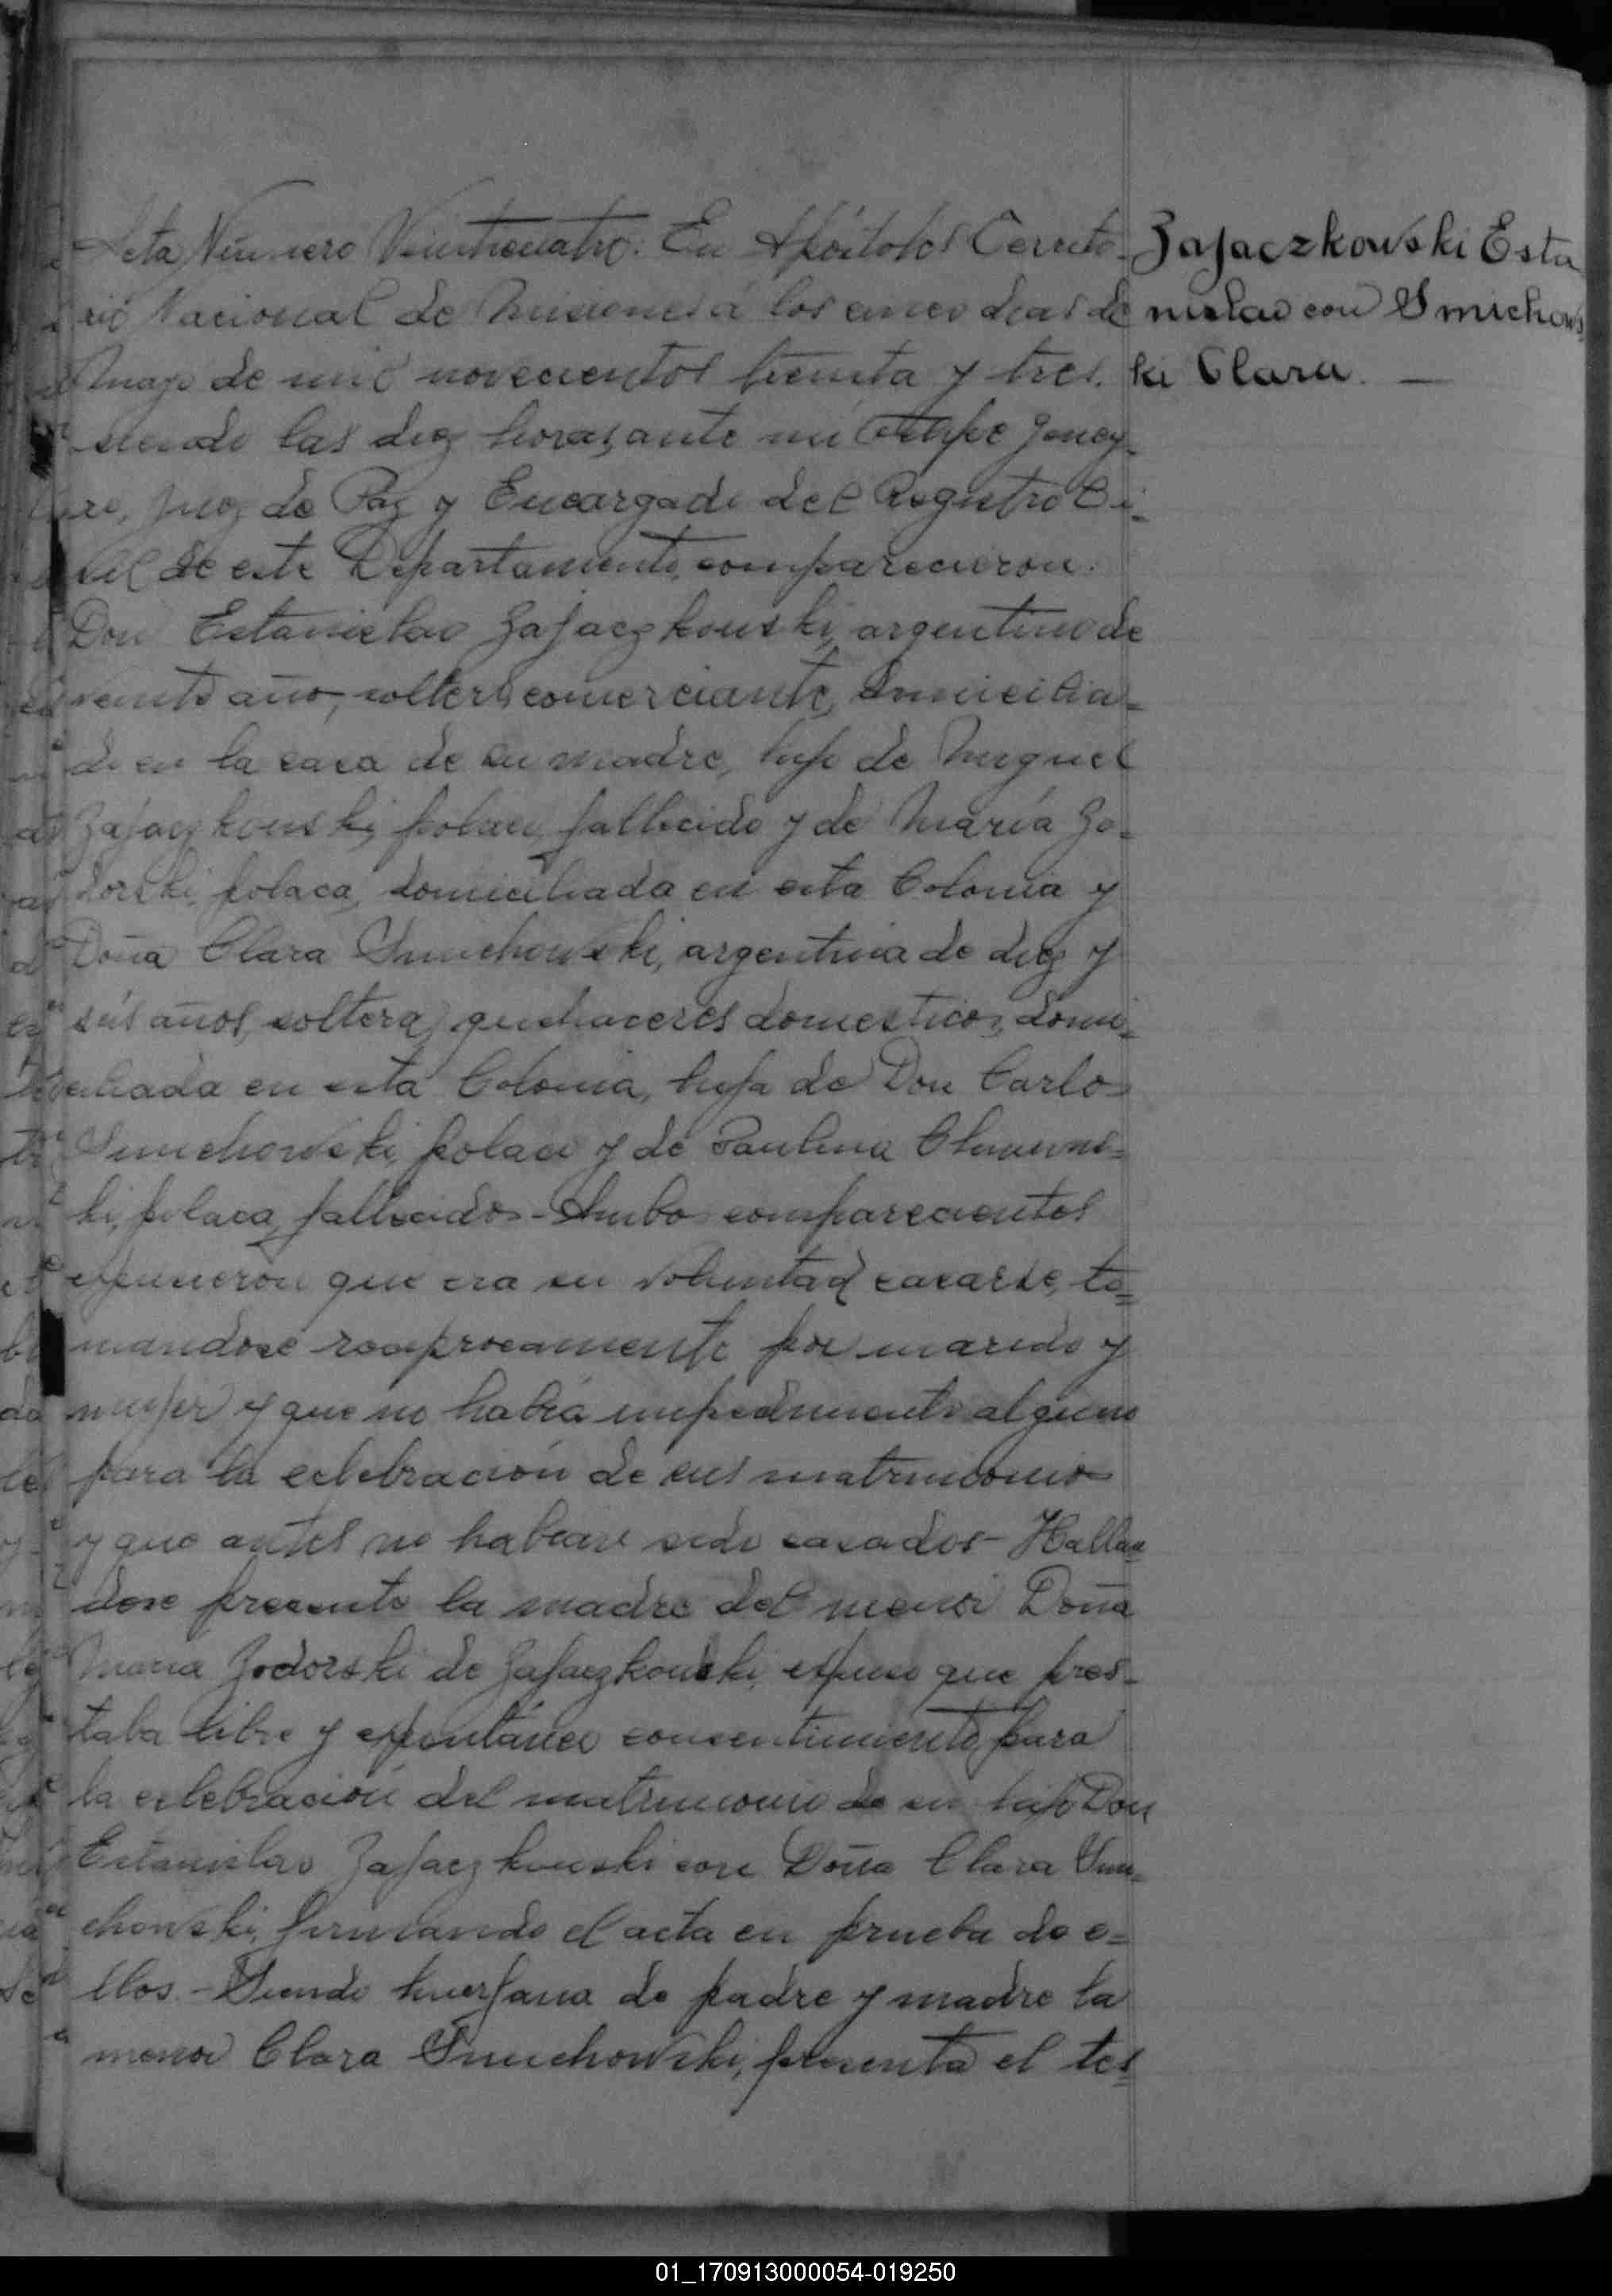 Acta Número Veinticuatro. En Apóstoles Territo-
rio Nacional de Misiones á los cinco dias de
Mayo de mil novecientos treinta y tres,
siendo las diez horas, ante mi
Juez de Paz y Encargado del Registro Ci-
vil de este Departamento, comparecieron:
Don Estanislao Zajaczkowski, argentino de
veinte año, soltero, comerciante, domicilia-
do en la casa de su madre, hijo de Miguel
Zajaczkowski, polaco, fallecido y de María Zo-
dorski, polaca, domiciliada en esta Colonia y
Doña Clara Smichowski, argentina de diez y
seis años, soltera, quehaceres domesticos, domi-
ciliada en esta Colonia, hija de Don Carlos
Smichowski, polaco y de Paulina
ki, polaca, fallecidos - Ambos comparecientes
expusieron que era su voluntad casarse, to-
mandose reciprocamente por marido y
mujer y que no había impedimento alguno
para la celebración de sus matrimonio
y que antes no habian sido casados - Hallan
dose presente la madre del menor Doña
Maria Zodorski de Zajaczkowski, expuso que pres-
taba libre y espontáneo consentimiento para
la celebración del matrimonio de su hijo Don
Estanislao Zajaczkowski con Doña Clara Smi-
chowski, firmando el acta en prueba de e-
llos - Siendo huerfana de padre y madre la
menor Clara Smichowski, presenta el tes
Zajaczkowski Esta
nislao con Smichows
ki Clara. —
01_170913000054-019250